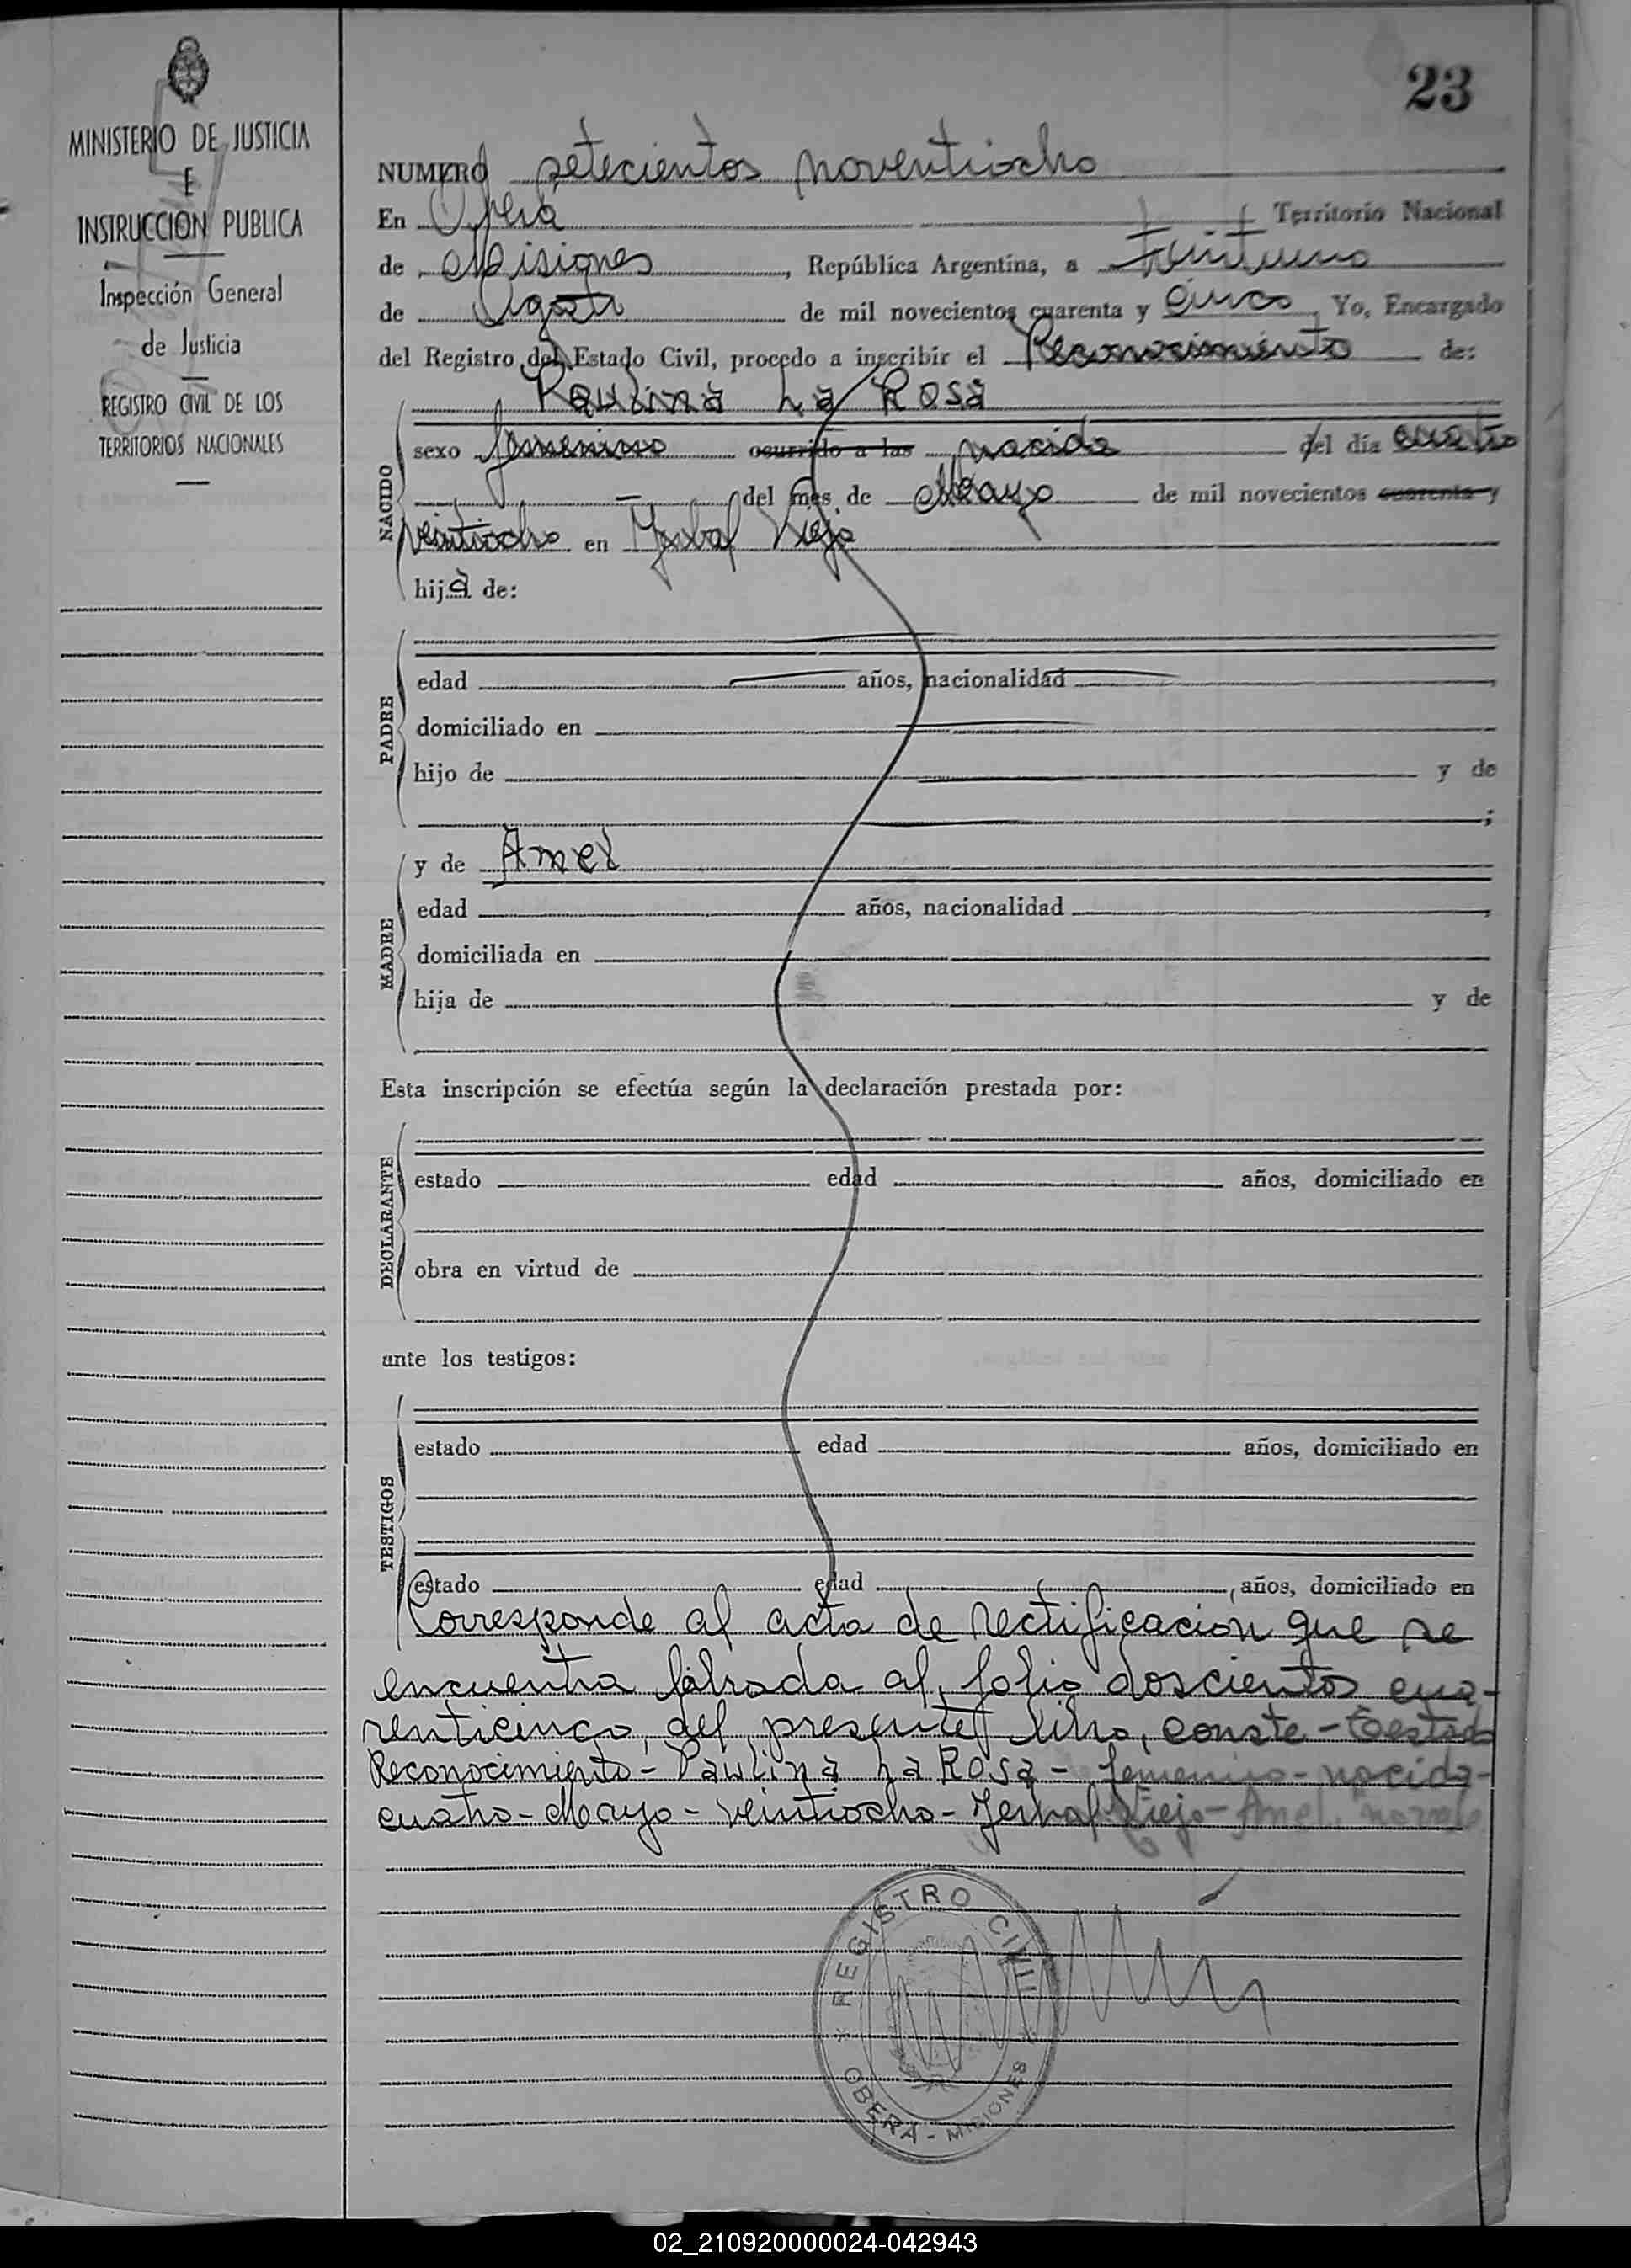 23
MINISTERIO DE JUSTICIA
E
INSTRUCCION PUBLICA
Inspección General
de Justicia
REGISTRO CIVIL DE LOS
TERRITORIOS NACIONALES
NUMERO setecientos noventiocho
En Oberá Territorio Nacional
de Misiones, República Argentina, a treintiuno
de Agosto de mil novecientos cuarenta y cinco Yo, Encargado
del Registro del Estado Civil, procedo a inscribir el Reconocimiento de:
Paulina La Rosa
NACIDO
sexo femenino ocurrido a las nacida del día cuatro
del mes de Mayo de mil novecientos cuarenta y
veintiocho en Yerbal Viejo
hija de:
PADRE
edad años, nacionalidad
domiciliado en
hijo de y de
;
MADRE
y de Amel
edad años, nacionalidad
domiciliada en
hija de y de
Esta inscripción se efectúa según la declaración prestada por:
DECLARANTE
estado edad años, domiciliado en
obra en virtud de
ante los testigos:
TESTIGOS
estado edad años, domiciliado en
estado edad años, domiciliado en
Corresponde al acta de rectificación que se
encuentra labrada al folio doscientos cua-
renticinco, del presente libro, conste - Testado
Reconocimiento - Pawlina La Rosa - femenino - nacida -
cuatro - Mayo - veintiocho - Yerbal Viejo - Amel.
REGISTRO CIVIL
OBERÁ - MISIONES
02_210920000024-042943